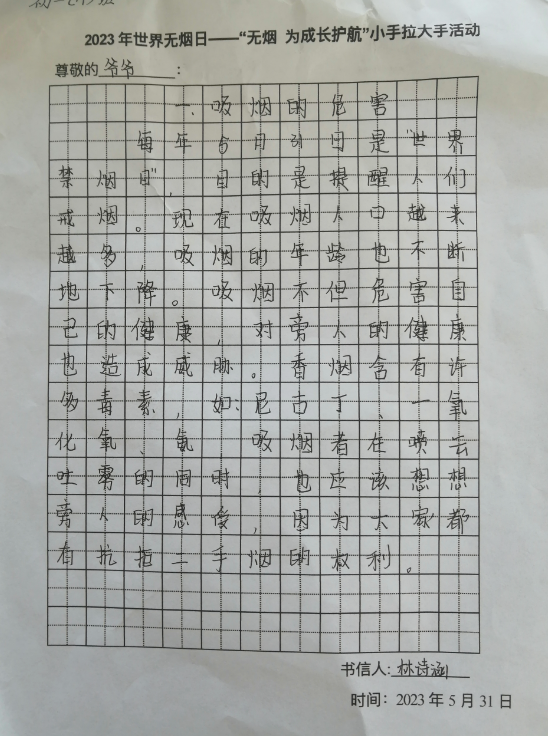 2023年世界无烟日——“无烟 为成长护航”小手拉大手活动
尊敬的 爷爷 :
一、吸烟的危害
每年5月31日是“世界
禁烟日”,目的是提醒人们
戒烟。现在吸烟人口越来
越多,吸烟的年龄也不断
地下降。吸烟不但危害自
己的健康,对旁人的健康
也造成威胁。香烟含有许
多毒素,如:尼古丁、一氧
化氧、氨 吸烟者在喷云
吐雾的同时,也应该想想
旁人的感受,因为大家都
有抗拒二手烟的权利。
书信人: 林诗涵
时间: 2023年5月31日